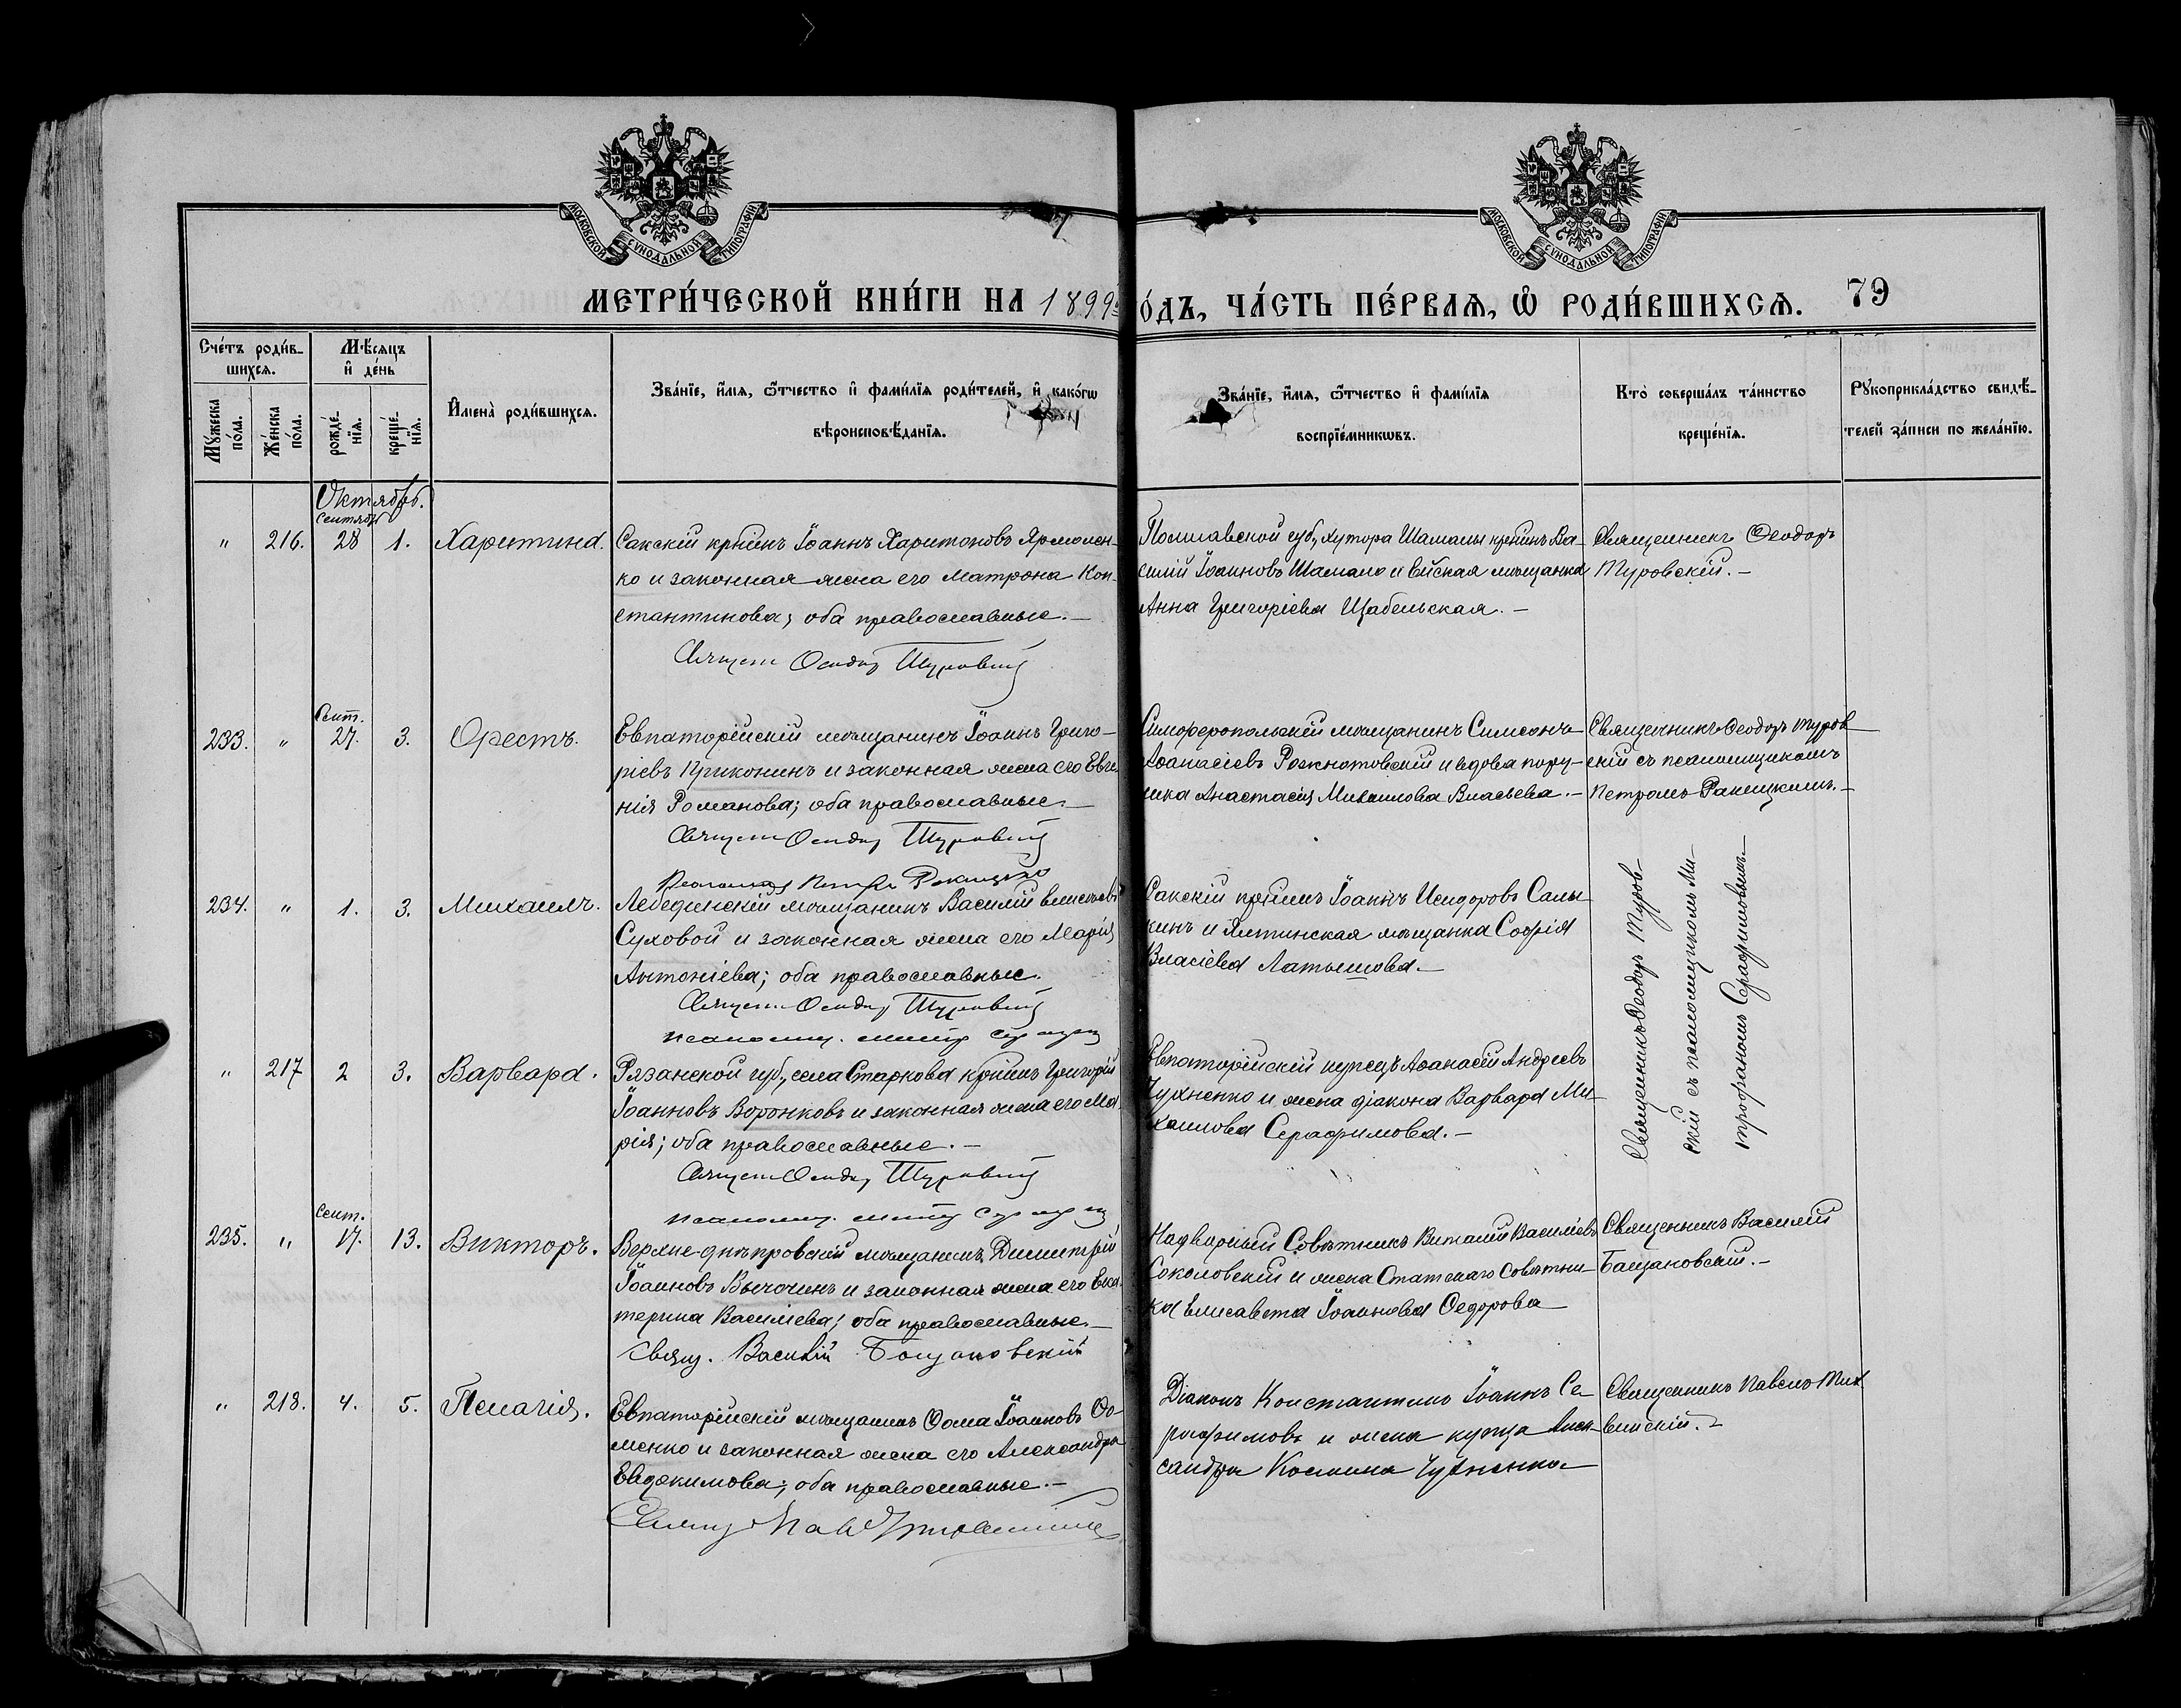 МОСКОВСКОЙ СѴНОДАЛЬНОЙ ТИПОГРАФІИ
МОСКОВСКОЙ СѴНОДАЛЬНОЙ ТИПОГРАФІИ
МЕТРИ́ЧЕСКОЙ КНИ́ГИ НА 1899
О́ДЪ, ЧА́СТЬ ПЕ́РВАѦ, Ѽ РОДИ́ВШИХСѦ. 79
Сче́тъ роди́в-
шихсѧ.
Мѣ́сѧцъ
и҆ де́нь
Мꙋ́жеска
по́ла.
Же́нска
по́ла.
рожде́-
нїѧ.
креще́-
нїѧ.
И҆мена̀ роди́вшихсѧ.
Зва́нїе, и҆́мѧ, ѻ҆́тчество и҆ фами́лїѧ роди́телей, и҆ како́гѡ
вѣроисповѣ́данїѧ.
Зва́нїе, и҆́мѧ, ѻ҆́тчество и҆ фами́лїѧ
воспрїе́мникѡвъ.
Кто̀ соверша́лъ та́инство
креще́нїѧ.
Рꙋкоприкла́дство свидѣ́-
телей за́писи по жела́нїю.
Октябрь.
Сентябр
" 216. 28 1. Харитина.
Сакскій крнинъ Іоаннъ Харитоновъ Ярмолен-
ко и законная жена его Матрона Кон-
стантинова; оба православные.—
Священ Ѳеодоръ Туровскій
Полтавской губ., хутора Шаталы крнинъ Ва-
силій Іоанновъ Шатало и Ейская мѣщанка
Анна Григоріева Щабельская.—
Священникъ Ѳеодоръ
Туровскій.—
Сент.
233. " 27. 3. Орестъ.
Евпаторійскій мѣщанинъ Іоаннъ Григо-
ріевъ Криконинъ и законная жена его Евге-
нія Романова; оба православные.—
Священ Ѳеодоръ Туровскій
Псаломщ Петръ Ракицкій
Симферопольскій мѣщанинъ Симеонъ
Аѳанасіевъ Рожнотовскій и вдова пору-
чика Анастасія Михаилова Власьева.—
Священникъ Ѳеодоръ Туров-
скій съ псаломщикомъ
Петромъ Ракицкимъ.—
234. " 1. 3. Михаилъ.
Лебединскій мѣщанинъ Василій
Суховой и законная жена его Марія
Антоніева; оба православные.
Священ Ѳеодоръ Туровскій
псаломщ. Митр
Сакскій крнинъ Іоаннъ Исидоровъ Салы-
кинъ и Ялтинская мѣщанка Софія
Власіева Латышова.—
Священникъ Ѳеодоръ Туров-
скій съ псаломщикомъ Ми-
трофаномъ Серафимовымъ.—
" 217 2 3. Варвара.
Рязанской губ., села Старкова крнинъ Григорій
Іоанновъ Воронковъ и законная жена его Ма-
рія; оба православные.—
Священ Ѳеодоръ Туровскій
псаломщ. Митр
Евпаторійскій купецъ Аѳанасій Андреевъ
Чухненко и жена діакона Варвара Ми-
хаилова Серафимова.—
Сент.
235. " 17. 13. Викторъ.
Верхне-днѣпровскій мѣщанинъ Димитрій
Іоанновъ Вычочинъ и законная жена его Ека-
терина Василіева; оба православные.—
Свящ. Василій Бащановскій
Надворный Совѣтникъ Виталій Василіевъ
Соколовскій и жена Статскаго Совѣтни-
ка Елисавета Іоаннова Ѳедорова
Священникъ Василій
Бащановскій.—
" 218. 4. 5. Пелагія.
Евпаторійскій мѣщанинъ Ѳома Іоанновъ Ѳо-
менко и законная жена его Александра
Евдокимова; оба православные.—
Діаконъ Константинъ Іоаннъ Се-
рафимовъ и жена купца Алек-
сандра Космина Чухненко
Священникъ Павелъ